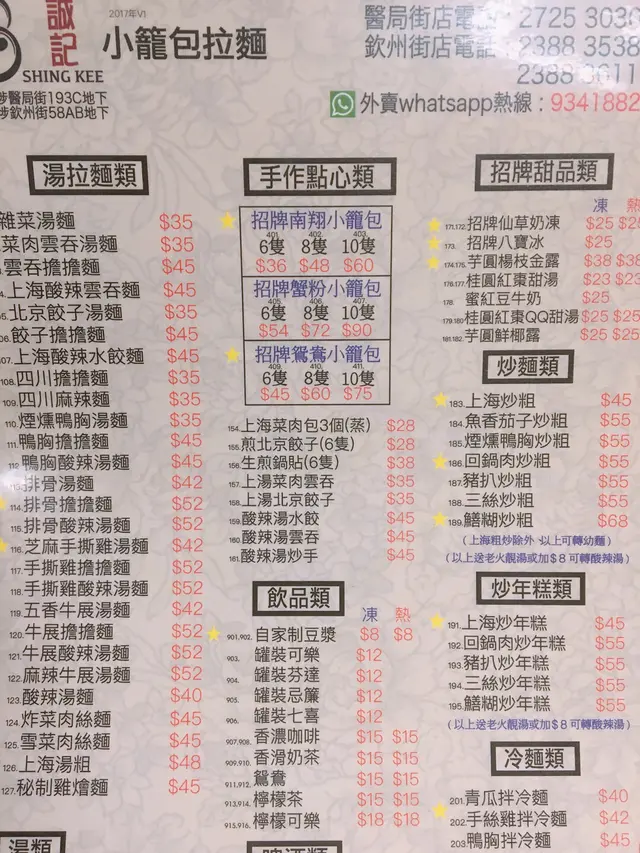 2017年V1
誠記
SHING KEE
小籠包拉麵
醫局街193C地下
欽州街58AB地下
醫局街店電話 2725 3030
欽州街店電話 2388 3538
2388 3611
外賣whatsapp熱線：9341882
湯拉麵類
雜菜湯麵 $35
菜肉雲吞湯麵 $35
雲吞擔擔麵 $45
上海酸辣雲吞麵 $45
北京餃子湯麵 $35
06. 餃子擔擔麵 $45
107. 上海酸辣水餃麵 $45
108. 四川擔擔麵 $35
109. 四川麻辣麵 $35
110. 煙燻鴨胸湯麵 $35
111. 鴨胸擔擔麵 $45
112. 鴨胸酸辣湯麵 $45
113. 排骨湯麵 $42
114. 排骨擔擔麵 $52
115. 排骨酸辣湯麵 $52
116. 芝麻手撕雞湯麵 $42
117. 手撕雞擔擔麵 $52
118. 手撕雞酸辣湯麵 $52
119. 五香牛展湯麵 $42
120. 牛展擔擔麵 $52
121. 牛展酸辣湯麵 $52
122. 麻辣牛展湯麵 $52
123. 酸辣湯麵 $40
124. 炸菜肉絲麵 $45
125. 雪菜肉絲麵 $45
126. 上海湯粗 $48
127. 秘制雞燴麵 $45
湯類
手作點心類
招牌南翔小籠包
401. 402. 403.
6隻 8隻 10隻
$36 $48 $60
招牌蟹粉小籠包
405. 406. 407.
6隻 8隻 10隻
$54 $72 $90
招牌鴛鴦小籠包
409. 410. 411.
6隻 8隻 10隻
$45 $60 $75
154. 上海菜肉包3個(蒸) $28
155. 煎北京餃子(6隻) $28
156. 生煎鍋貼(6隻) $38
157. 上湯菜肉雲吞 $35
158. 上湯北京餃子 $35
159. 酸辣湯水餃 $45
160. 酸辣湯雲吞 $45
161. 酸辣湯炒手 $45
飲品類
凍 熱
901.902. 自家制豆漿 $8 $8
903. 罐裝可樂 $12
904. 罐裝芬達 $12
905. 罐裝忌簾 $12
906. 罐裝七喜 $12
907.908. 香濃咖啡 $15 $15
909.910. 香滑奶茶 $15 $15
911.912. 鴛鴦 $15 $15
913.914. 檸檬茶 $15 $15
915.916. 檸檬可樂 $18 $18
啤酒類
招牌甜品類
凍 熱
171.172. 招牌仙草奶凍 $25 $25
173. 招牌八寶冰 $25
174.175. 芋圓楊枝金露 $38 $38
176.177. 桂圓紅棗甜湯 $23 $23
178. 蜜紅豆牛奶 $25
179.180. 桂圓紅棗QQ甜湯 $25 $25
181.182. 芋圓鮮椰露 $25 $25
炒麵類
183. 上海炒粗 $45
184. 魚香茄子炒粗 $55
185. 煙燻鴨胸炒粗 $55
186. 回鍋肉炒粗 $55
187. 豬扒炒粗 $55
188. 三絲炒粗 $55
189. 鱔糊炒粗 $68
(上海粗炒除外 以上可轉幼麵)
(以上送老火靚湯或加$8可轉酸辣湯)
炒年糕類
191. 上海炒年糕 $45
192. 回鍋肉炒年糕 $55
193. 豬扒炒年糕 $55
194. 三絲炒年糕 $55
195. 鱔糊炒年糕 $55
(以上送老火靚湯或加$8可轉酸辣湯)
冷麵類
201. 青瓜拌冷麵 $40
202. 手絲雞拌冷麵 $42
203. 鴨胸拌冷麵 $45